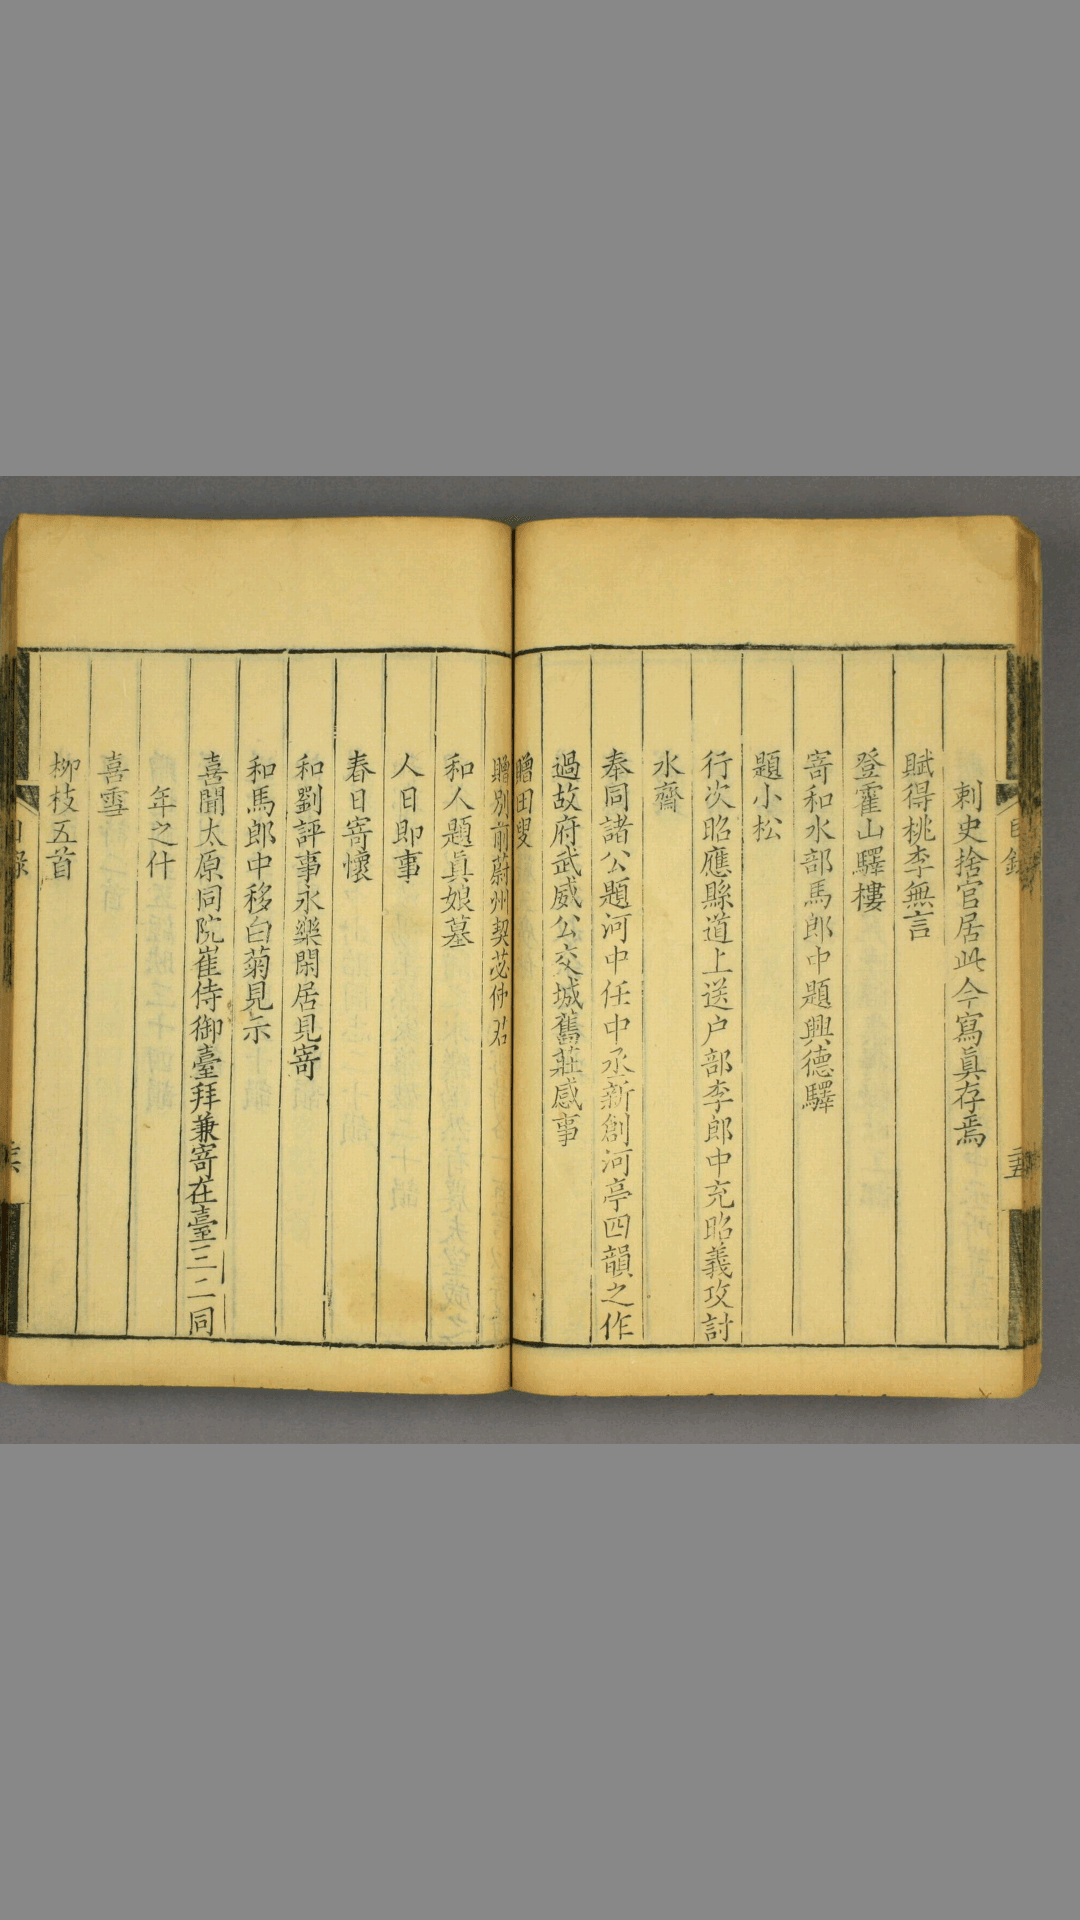 目錄
五
刺史捨官居此今寫眞存焉
賦得桃李無言
登霍山驛樓
寄和水部馬郎中題興德驛
題小松
行次昭應縣道上送户部李郎中充昭義攻討
水齋
奉同諸公題河中任中丞新創河亭四韻之作
過故府武威公交城舊莊感事
贈田叟
贈別前蔚州契苾使君
和人題眞娘墓
人日即事
春日寄懷
和劉評事永樂閑居見寄
和馬郎中移白菊見示
喜聞太原同院崔侍御臺拜兼寄在臺三二同
年之什
喜雪
柳枝五首